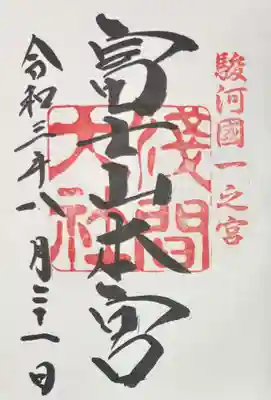 駿河國一之宮
富士山本宮
淺間
大社
令和三年八月二十一日